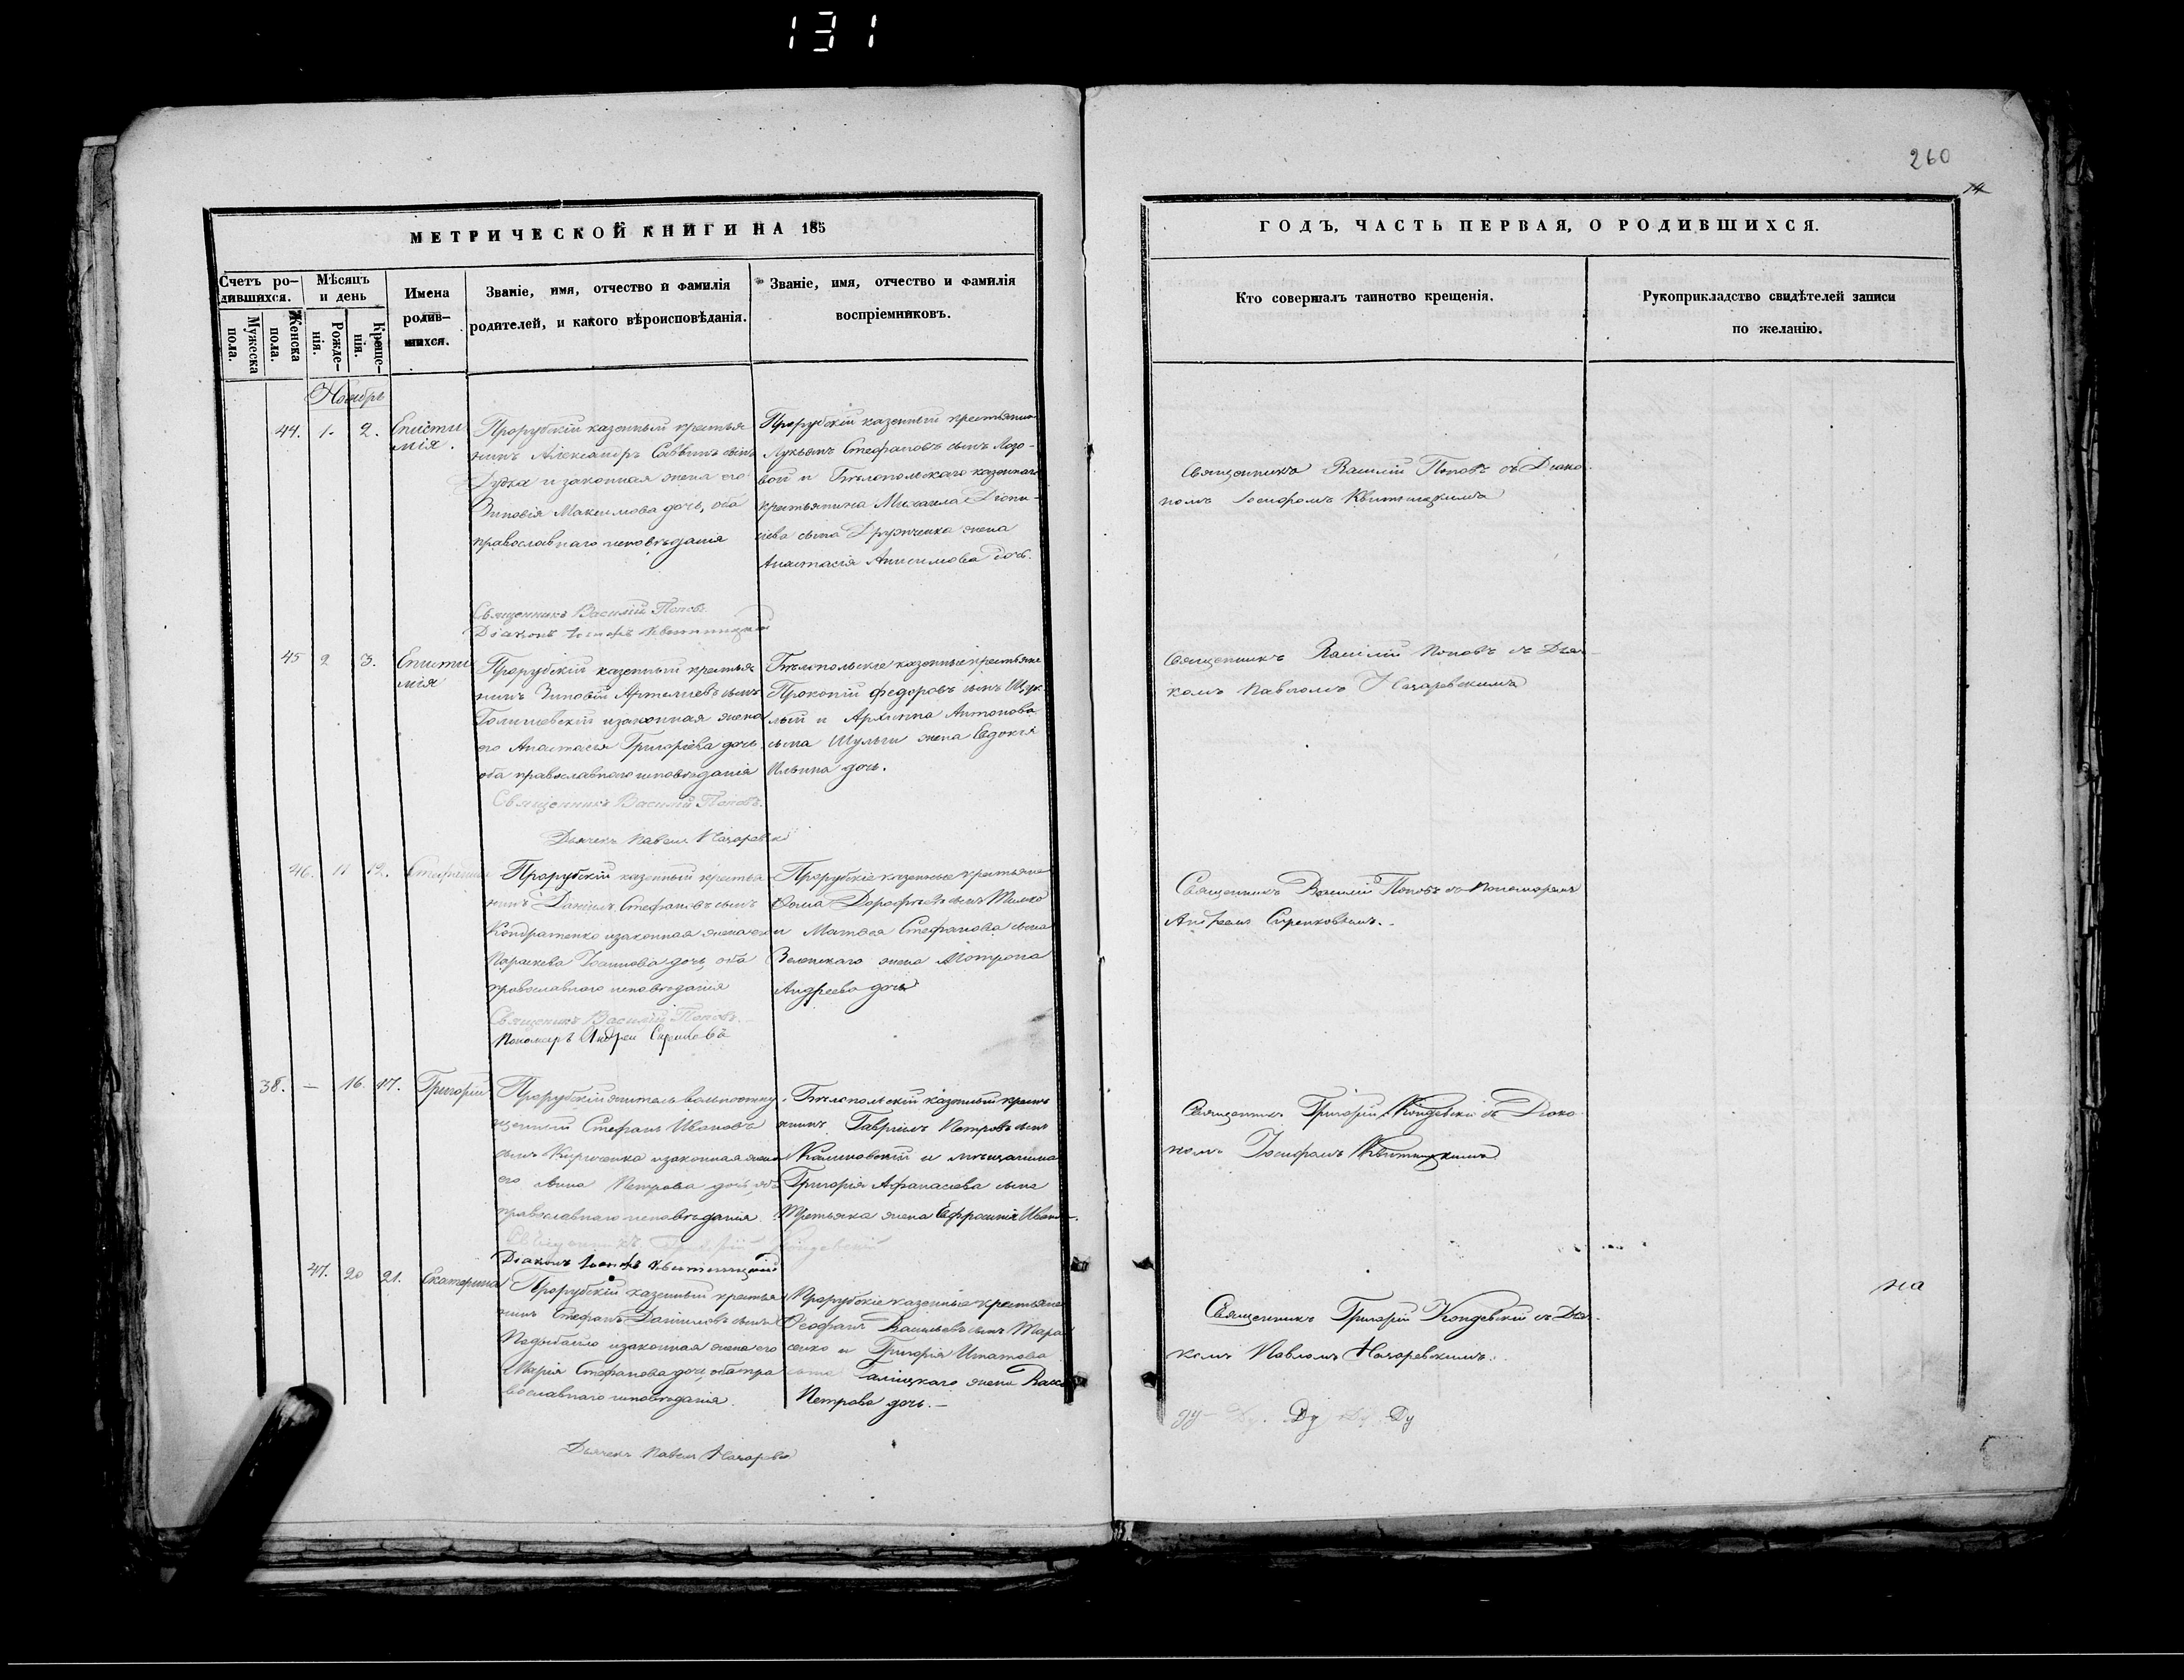 131
260
14
МЕТРИЧЕСКОЙ КНИГИ НА 185
ГОДЪ, ЧАСТЬ ПЕРВАЯ, О РОДИВШИХСЯ.
Счетъ ро-
дившихся.
Мужеска
пола.
Женска
пола.
Мѣсяцъ
и день
Рожде-
нія.
Креще-
нія.
Имена
родив-
шихся.
Званіе, имя, отчество и фамилія
родителей, и какого вѣроисповѣданія.
Званіе, имя, отчество и фамилія
воспріемниковъ.
Кто совершалъ таинство крещенія.
Рукоприкладство свидѣтелей записи
по желанію.
Ноябрь
44. 1. 2.
Еписти
мія.
Прорубскій казенный крестья
нинъ Александръ Саввинъ сынъ
Дудка и законная жена его
Зиновія Максимова дочь, оба
православнаго исповѣданія
Прорубскій казенный крестьянинъ
Лукьянъ Стефановъ сынъ Лозо-
вой и Бѣлопольскаго казеннаго
крестьянина Михаила Діони-
сіева сына жена
Анастасія Анисимова дочь.
Священникъ Василій Поповъ съ Діако
номъ Іосифомъ Квитницкимъ
Священникъ Василій Поповъ
Діаконъ Іосифъ Квитницкій
45 2 3.
Еписти
мія
Прорубскій казенный крестья
нинъ Зиновій Артемьевъ сынъ
Голишевскій и законная жена
его Анастасія Григоріева дочь
оба православнаго исповѣданія
Бѣлопольскіе казенные крестьяне
Прокопій Федоровъ сынъ
и Архиппа Антонова
сына Шульги жена Евдокія
Ильина дочь.
Священникъ Василій Поповъ съ Дьяч-
комъ Павломъ Назаревскимъ
Священникъ Василій Поповъ.
Дьячекъ Павелъ Назаревскі
46. 11 12.
Прорубскій казенный крестья
нинъ Даніилъ Стефановъ сынъ
Кондратенко и законная жена его
Параскева Іоаннова дочь, оба
православнаго исповѣданія
Прорубскіе казенные крестьяне
Фома Дорофѣевъ сынъ
и Матвея Стефанова сына
Зеленскаго жена Мотрона
Андреева дочь
Священникъ Василій Поповъ съ Пономаремъ
Андреемъ
Священникъ Василій Поповъ.
Пономарь Андрей
38. — 16. 17.
Григорій
Прорубскій житель вольноотпу
щенный Стефанъ Ивановъ
сынъ Кириченко и законная жена
его Анна Петрова дочь, оба
православнаго исповѣданія
Бѣлопольскій казенный крестья
нинъ Гавріилъ Петровъ сынъ
Калиновскій и мѣщанина
Григорія Афанасіева сына
Третьяка жена Ефросинія Иванова
Священникъ Григорій Кондевскій съ Діако
номъ Іосифомъ Квитницкимъ
Священникъ Григорій Кондевскій
Діаконъ Іосифъ Квитницкій
47. 20 21.
Екатерина
Прорубскій казенный крестья
нинъ Стефанъ Даніиловъ сынъ
и законная жена его
Марія Стефанова дочь, оба пра
вославнаго исповѣданія.
Прорубскіе казенные крестьяне
Феофанъ Васильевъ сынъ Тара
сенко и Григорія Игнатова
сына Галицкаго жена
Петрова дочь. —
на
Священникъ Григорій Кондевскій съ Дьяч-
комъ Павломъ Назаревскимъ.
Дьячекъ Павелъ Назаревс
ду— Ду. Ду Ду Ду